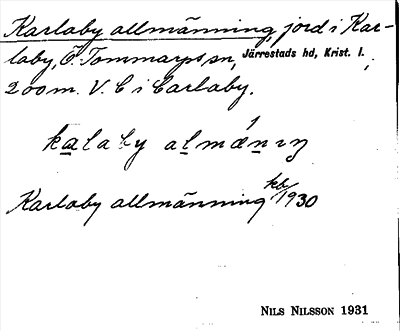 Karlaby allmänning, jord i Kar-
laby, Ö. Tommarps sn, Järrestads hd, Krist. l.,
200 m. V. C i Carlaby.
kalaby almænıŋ
Karlaby allmänning kb/1930
NILS NILSSON 1931